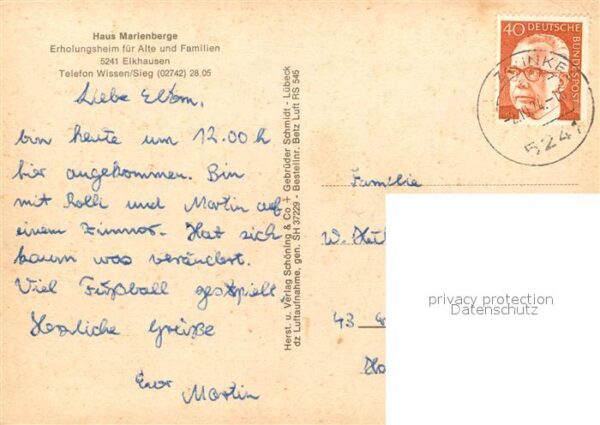 Haus Marienberge
Erholungsheim für Alte und Familien
5241 Elkhausen
Telefon Wissen/Sieg (02742) 28.05
Liebe Eltern,
bin heute um 12.00 h
hier angekommen. Bin
mit Rolli und Martin auf
einem Zimmer. Hat sich
kaum was verändert.
Viel Fußball gespielt,
Herzliche Grüße
Euer
Martin
Herst. u. Verlag Schöning & Co + Gebrüder Schmidt - Lübeck
dz Luftaufnahme, gen. SH 37229 - Bestellnr. Betz Luft RS 545
40
DEUTSCHE
BUNDESPOST
5241
Familie
W.
43
privacy protection
Datenschutz